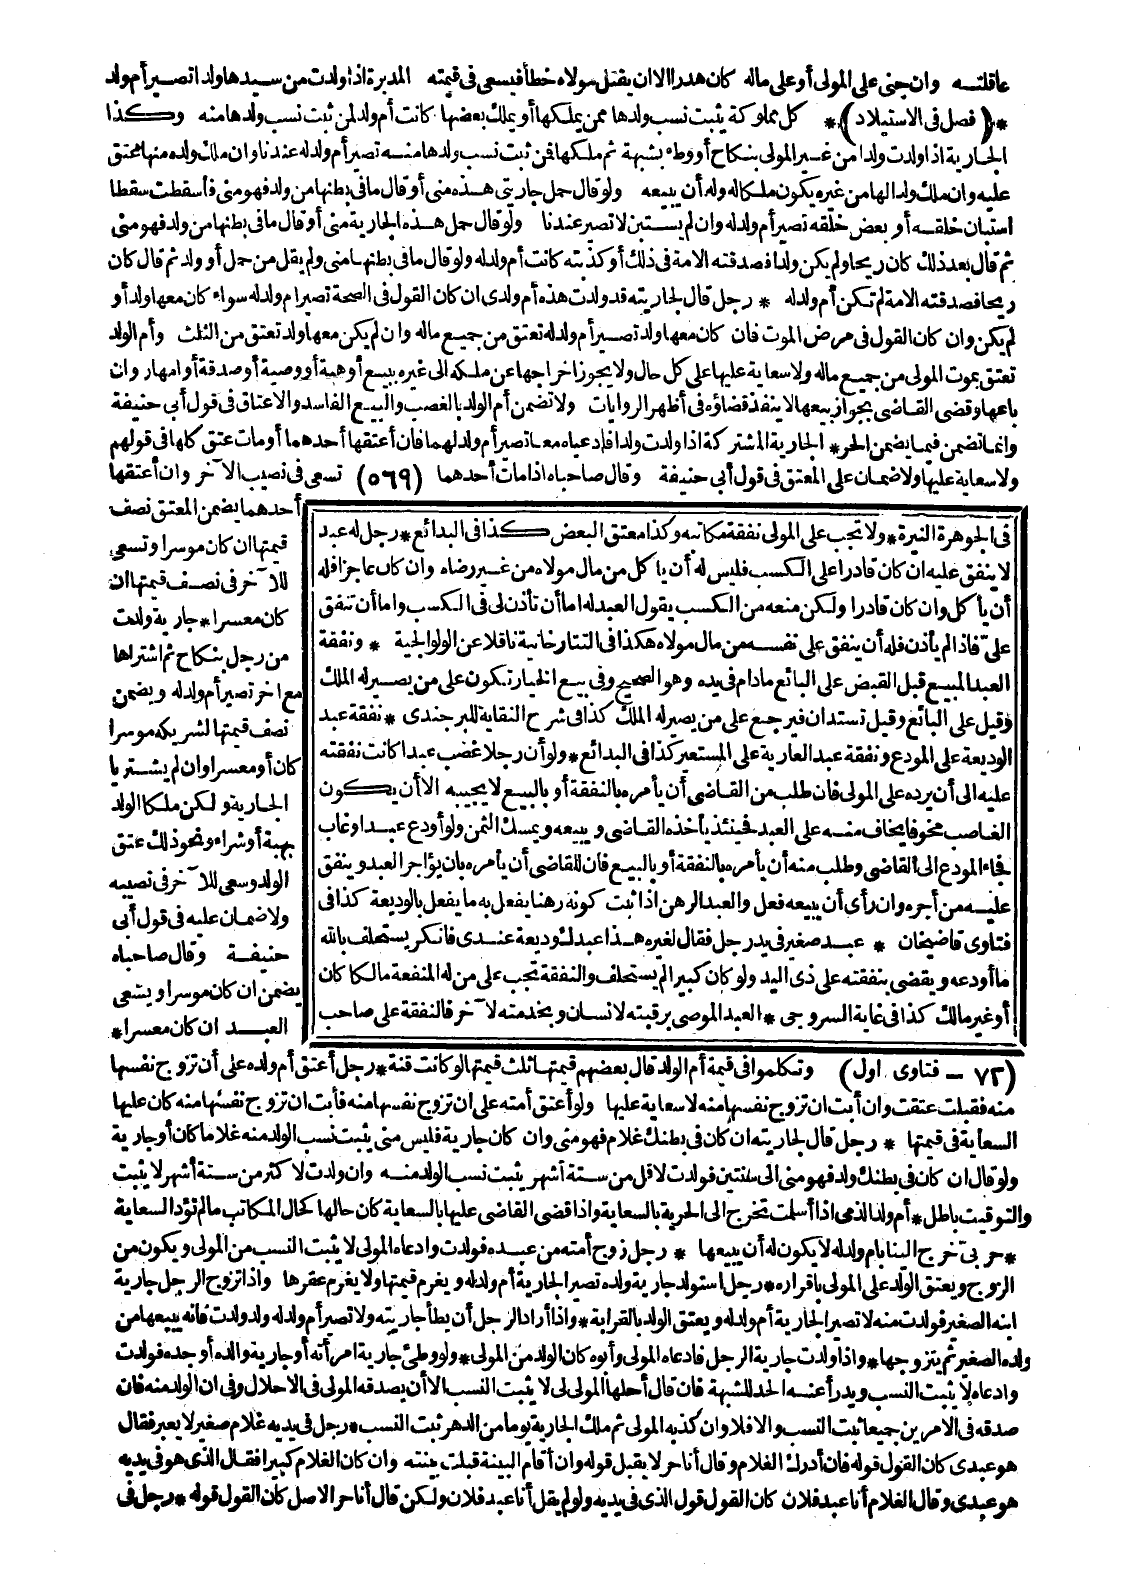 عاقلته وان جنى على المولى أو على ماله كان هدرا الا ان يقتل مولاه خطأ فيسعى فى قيمته المدبرة اذا ولدت من سيدها ولدا تصير أم ولد
*(فصل فى الاستيلاد)* كل مملوكة يثبت نسب ولدها ممن يملكها أو يملك بعضها كانت أم ولد لمن ثبت نسب ولدها منه وكذا
الجارية اذا ولدت ولدا من غير المولى بنكاح أو وطء بشبهة ثم ملكها من ثبت نسب ولدها منه تصير أم ولد له عندنا وان ملك ولده منها يعتق
عليه وان ملك ولدا لها من غيره يكون ملكا له وله أن يبيعه ولو قال حمل جاريتى هذه منى أو قال ما فى بطنها من ولد فهو منى فأسقطت سقطا
استبان خلقه أو بعض خلقه تصير أم ولد له وان لم يستبن لا تصير عندنا ولو قال حمل هذه الجارية منى أو قال ما فى بطنها من ولد فهو منى
ثم قال بعد ذلك كان ريحا ولم يكن ولدا فصدقته الامة فى ذلك أو كذبته كانت أم ولد له ولو قال ما فى بطنها منى ولم يقل من حمل أو ولد ثم قال كان
ريحا فصدقته الامة لم تكن أم ولد له * رجل قال لجاريته قد ولدت هذه أم ولدى ان كان القول فى الصحة تصير ام ولد له سواء كان معها ولد أو
لم يكن وان كان القول فى مرض الموت فان كان معها ولد تصير أم ولد له تعتق من جميع ماله وان لم يكن معها ولد تعتق من الثلث وأم الولد
تعتق بموت المولى من جميع ماله ولا سعاية عليها على كل حال ولا يجوز اخراجها عن ملكه الى غيره ببيع أو هبة أو وصية أو صدقة أو امهار وان
باعها وقضى القاضى بجواز بيعها لا ينفذ قضاؤه فى أظهر الروايات ولا تضمن أم الولد بالغصب والبيع الفاسد والاعتاق فى قول أبى حنيفة
وانما تضمن فيما يضمن الحر * الجارية المشتركة اذا ولدت ولدا فادعياه معا تصير أم ولد لهما فان أعتقها أحدهما أو مات عتق كلها فى قولهم
ولا سعاية عليها ولا ضمان على المعتق فى قول أبى حنيفة وقال صاحباه اذا مات أحدهما (٥٦٩) تسعى فى نصيب الآخر وان أعتقها
أحدهما يضمن المعتق نصف
قيمتها ان كان موسرا وتسعى
للآخر فى نصف قيمتها ان
كان معسرا * جارية ولدت
من رجل بنكاح ثم اشتراها
مع اخر تصير أم ولد له ويضمن
نصف قيمتها لشريكه موسرا
كان أو معسرا وان لم يشتريا
الجارية ولكن ملكا الولد
بهبة أو شراء ونحو ذلك عتق
الولد وسعى للآخر فى نصيبه
ولا ضمان عليه فى قول أبى
حنيفة وقال صاحباه
يضمن ان كان موسرا ويسعى
العبد ان كان معسرا *
فى الجوهرة النيرة * ولا تجب على المولى نفقة مكاتبه وكذا معتق البعض كذا فى البدائع * رجل له عبد
لا ينفق عليه ان كان قادرا على الكسب فليس له أن يأكل من مال مولاه من غير رضاه وان كان عاجزا فله
أن يأكل وان كان قادرا ولكن منعه من الكسب يقول العبد له اما أن تأذن لى فى الكسب واما أن تنفق
علىّ فاذا لم يأذن فله أن ينفق على نفسه من مال مولاه هكذا فى التتارخانية ناقلا عن الولوالجية * ونفقة
العبد المبيع قبل القبض على البائع مادام فى يده وهو الصحيح وفى بيع الخيار تكون على من يصير له الملك
وقيل على البائع وقيل تستدان فيرجع على من يصير له الملك كذا فى شرح النقاية للبرجندى * نفقة عبد
الوديعة على المودع ونفقة عبد العارية على المستعير كذا فى البدائع * ولو أن رجلا غصب عبدا كانت نفقته
عليه الى أن يرده على المولى فان طلب من القاضى أن يأمره بالنفقة أو بالبيع لا يجيبه الا أن يكون
الغاصب مخوفا يخاف منه على العبد فحينئذ يأخذه القاضى ويبيعه ويمسك الثمن ولو أودع عبدا وغاب
فجاء المودع الى القاضى وطلب منه أن يأمره بالنفقة أو بالبيع فان للقاضى أن يأمره بان يؤاجر العبد وينفق
عليه من أجره وان رأى أن يبيعه فعل والعبد الرهن اذا ثبت كونه رهنا يفعل به ما يفعل بالوديعة كذا فى
فتاوى قاضيخان * عبد صغير فى يد رجل فقال لغيره هذا عبدك وديعة عندى فانكر يستحلف بالله
ما أودعه ويقضى بنفقته على ذى اليد ولو كان كبيرا لم يستحلف والنفقة تجب على من له المنفعة مالكا كان
أو غير مالك كذا فى غاية السروجى * العبد الموصى برقبته لانسان وبخدمته لآخر فالنفقة على صاحب
(٧٢ - فتاوى اول) وتكلموا فى قيمة أم الولد قال بعضهم قيمتها ثلث قيمتها لو كانت قنة * رجل أعتق أم ولده على أن تزوج نفسها
منه فقبلت عتقت وان أبت ان تزوج نفسها منه لا سعاية عليها ولو أعتق أمته على ان تزوج نفسها منه فأبت ان تزوج نفسها منه كان عليها
السعاية فى قيمتها * رجل قال لجاريته ان كان فى بطنك غلام فهو منى وان كان جارية فليس منى يثبت نسب الولد منه غلاما كان أو جارية
ولو قال ان كان فى بطنك ولد فهو منى الى سنتين فولدت لاقل من ستة أشهر يثبت نسب الولد منه وان ولدت لاكثر من ستة أشهر لا يثبت
والتوقيت باطل * أم ولد الذمى اذا أسلمت تخرج الى الحرية بالسعاية واذا قضى القاضى عليها بالسعاية كان حالها كحال المكاتب ما لم تؤد السعاية
* حربىّ خرج الينا بام ولد له لا يكون له أن يبيعها * رجل زوج أمته من عبده فولدت وادعاه المولى لا يثبت النسب من المولى ويكون من
الزوج ويعتق الولد على المولى باقراره * رجل استولد جارية ولده تصير الجارية أم ولد له ويغرم قيمتها ولا يغرم عقرها واذا تزوج الرجل جارية
ابنه الصغير فولدت منه لا تصير الجارية أم ولد له ويعتق الولد بالقرابة * واذا أراد الرجل أن يطأ جاريته ولا تصير أم ولد له ولد ولدت فانه يبيعها من
ولده الصغير ثم يتزوجها * واذا ولدت جارية الرجل فادعاه المولى وأبوه كان الولد من المولى * ولو وطئ جارية امرأته أو جارية والده أو جده فولدت
وادعاه لا يثبت النسب ويدرأ عنه الحد للشبهة فان قال أحلها المولى لى لا يثبت النسب الا أن يصدقه المولى فى الاحلال وفى ان الولد منه فان
صدقه فى الامرين جميعا ثبت النسب والا فلا وان كذبه المولى ثم ملك الجارية يوما من الدهر ثبت النسب * رجل فى يديه غلام صغير لا يعبر فقال
هو عبدى كان القول قوله فان أدرك الغلام وقال أنا حر لا يقبل قوله وان أقام البينة قبلت بينته وان كان الغلام كبيرا فقال الذى هو فى يديه
هو عبدى وقال الغلام أنا عبد فلان كان القول قول الذى فى يديه ولو لم يقل أنا عبد فلان ولكن قال أنا حر الاصل كان القول قوله * رجل فى